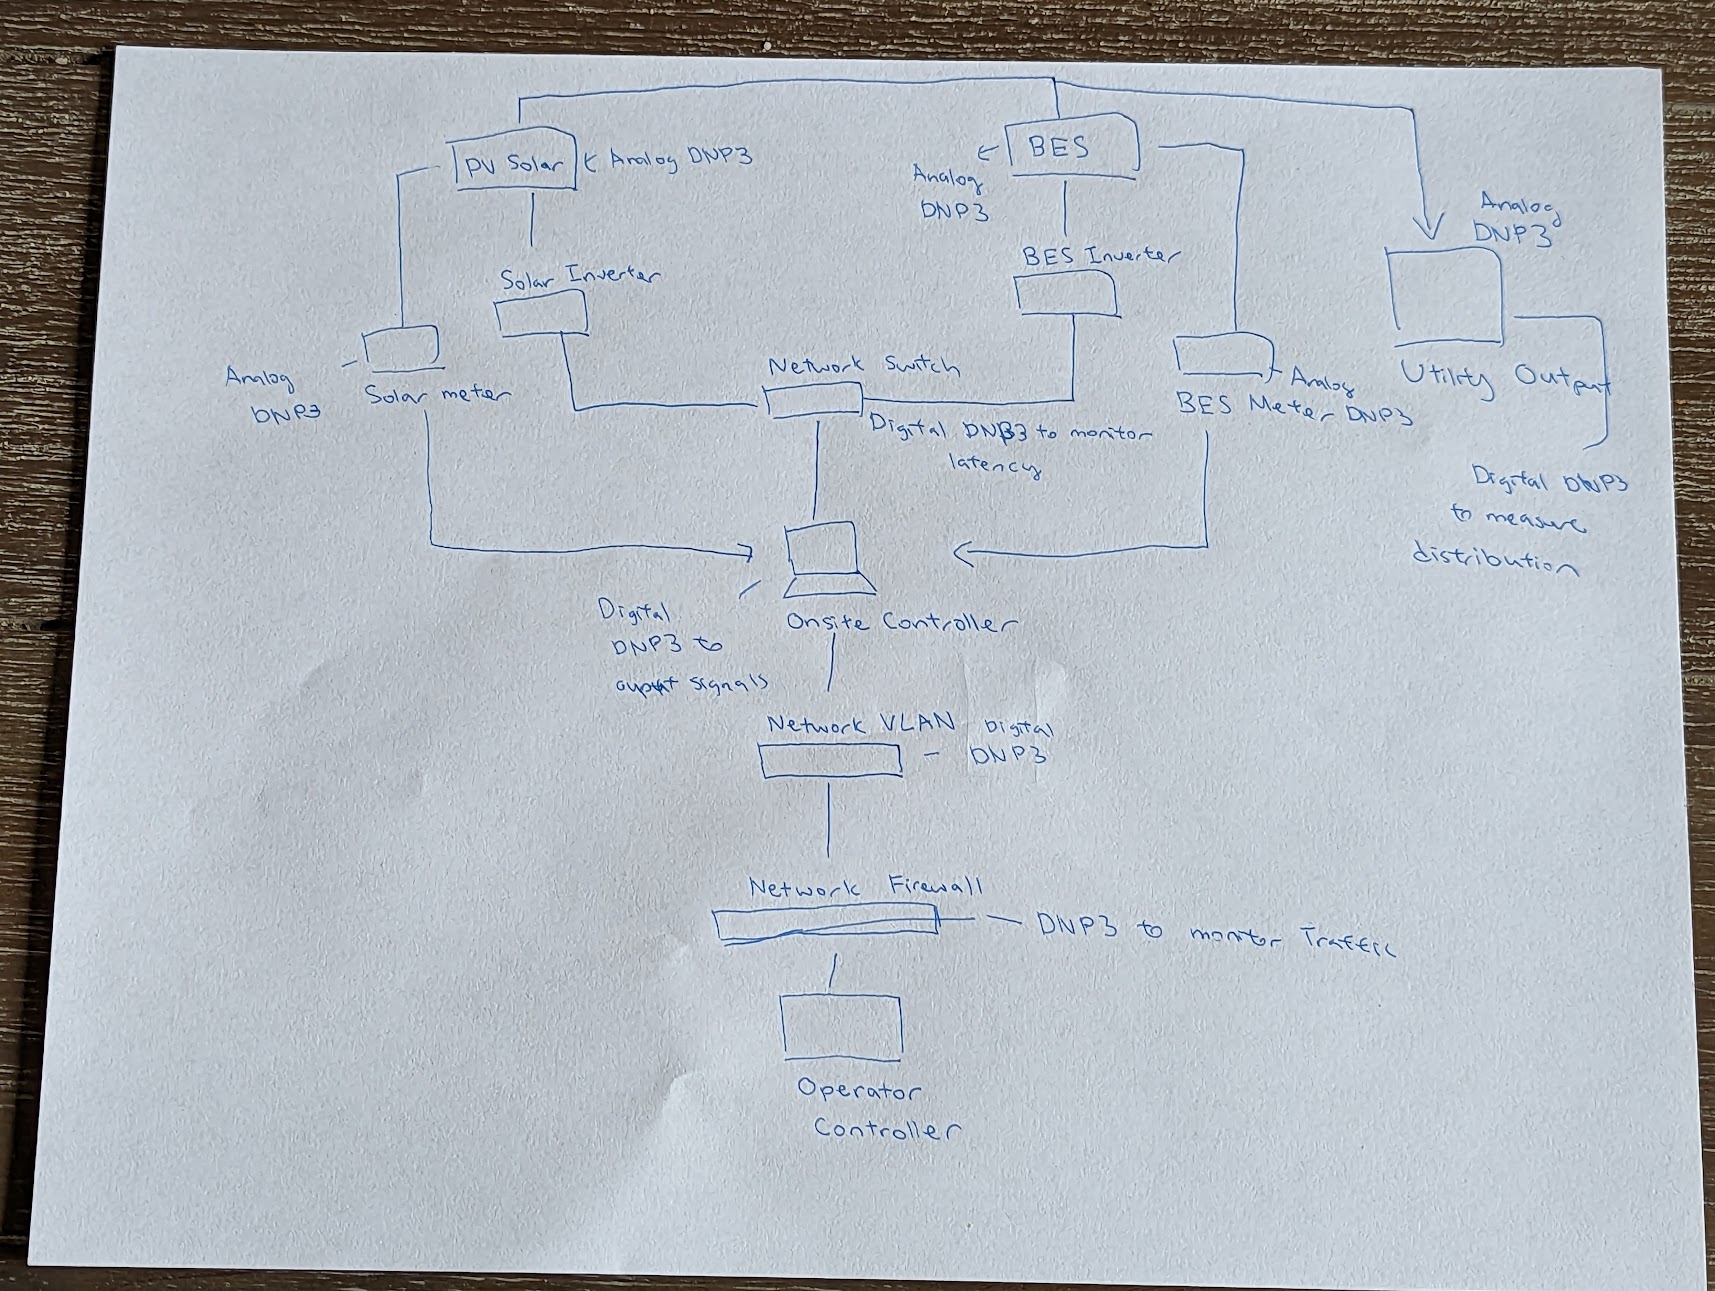 PV Solar
Analog DNP3
BES
Analog
DNP3
Analog
DNP3
Solar Inverter
BES Inverter
Network Switch
Analog
DNP3
Solar meter
Analog
BES Meter DNP3
Utility Output
Digital DNP3 to monitor
latency
Digital DNP3
to measure
distribution
Digital
DNP3 to
signals
Onsite Controller
Network VLAN
Digital
DNP3
Network Firewall
DNP3 to monitor Traffic
Operator
Controller